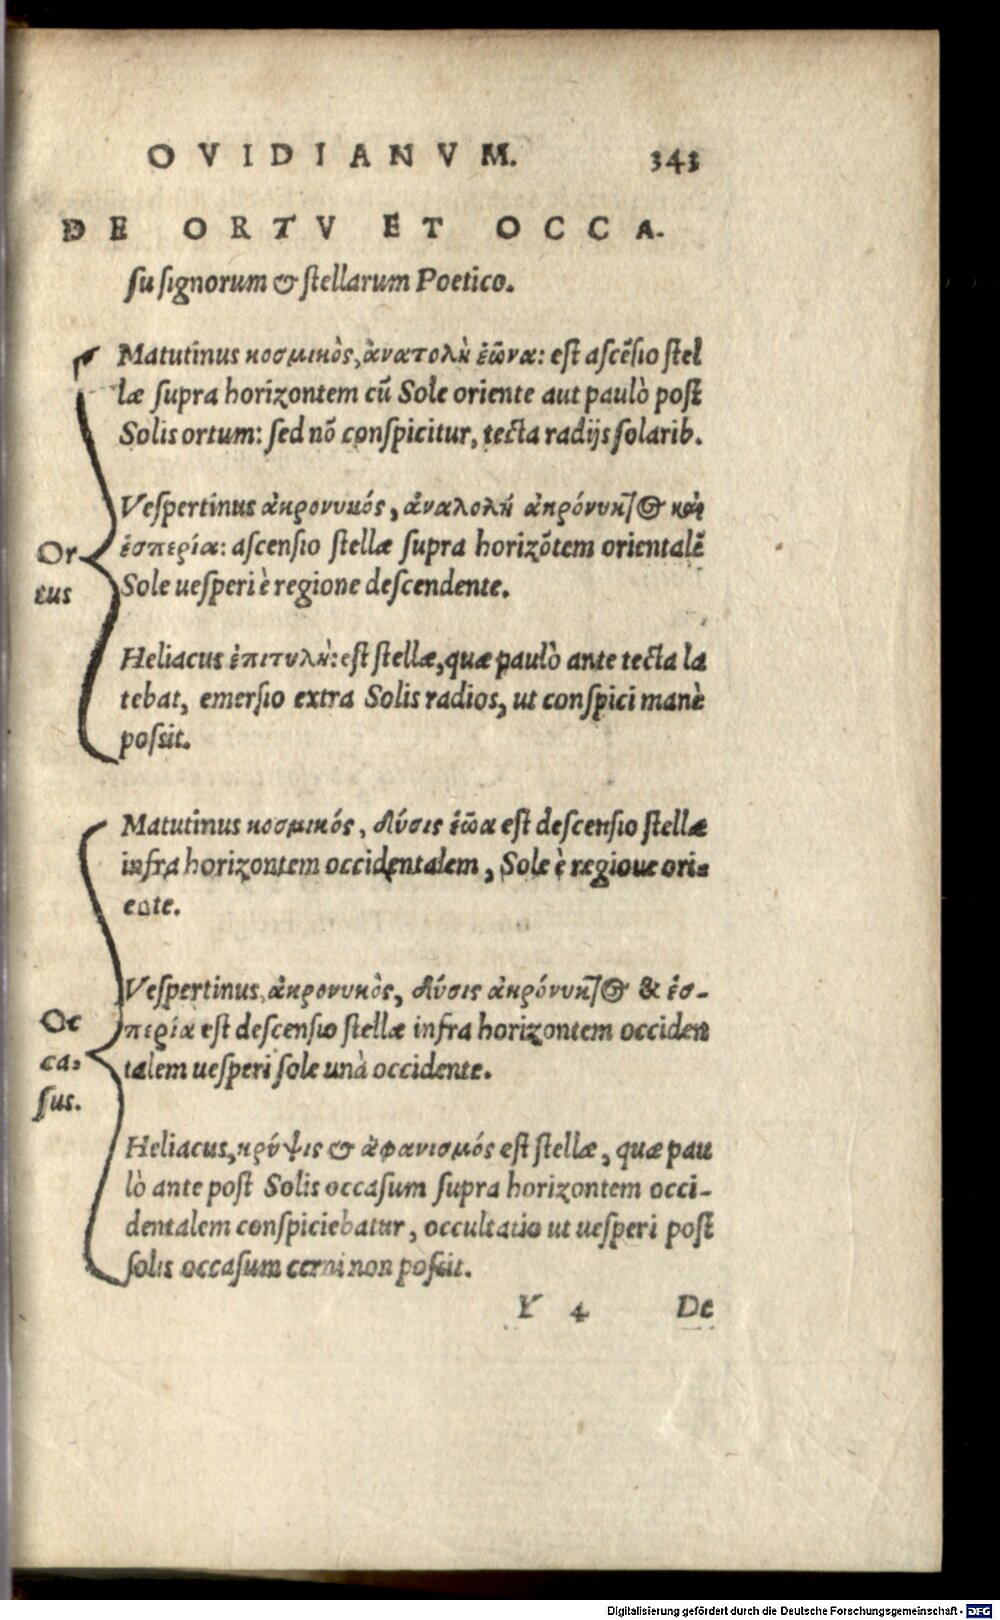 OVIDIANVM. 343
DE ORTV ET OCCA-
su signorum & stellarum Poetico.
Matutinus κοσμικὸς, ἀνατολὴ ἑῶνα: est ascēsio stel
læ supra horizontem cū Sole oriente aut paulò post
Solis ortum: sed nō conspicitur, tecta radijs solarib.
Vespertinus ἀκρονυκός, ἀναλολή ἀκρόνυκῖος καὶ
ἑσπερία: ascensio stellæ supra horizōtem orientalē
Sole uesperi è regione descendente.
Heliacus ἐπιτυλὴ: est stellæ, quæ paulò ante tecta la
tebat, emersio extra Solis radios, ut conspici manè
possit.
Or
tus
Matutinus κοσμικός, δύσις ἑῶα est descensio stellæ
infra horizontem occidentalem, Sole è regione ori-
ente.
Vespertinus, ἀκρονυκὸς, δύσις ἀκρόνυκῖος & ἑσ-
περία est descensio stellæ infra horizontem occiden
talem uesperi sole unà occidente.
Heliacus, κρύψις & ἀφανισμός est stellæ, quæ pau
lò ante post Solis occasum supra horizontem occi-
dentalem conspiciebatur, occultatio ut uesperi post
solis occasum cerni non possit.
Oc
ca-
sus.
Y 4 De
Digitalisierung gefördert durch die Deutsche Forschungsgemeinschaft - DFG